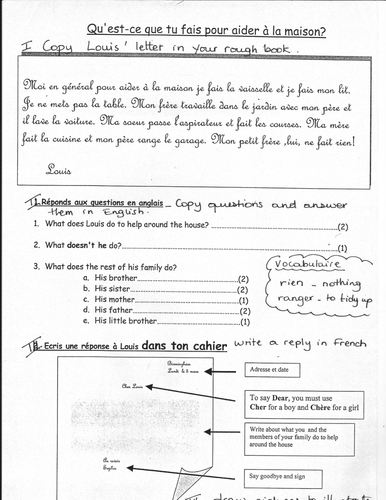 Qu'est-ce que tu fais pour aider à la maison?
I Copy Louis' letter in your rough book.
Moi en général pour aider à la maison je fais la vaisselle et je fais mon lit.
Je ne mets pas la table. Mon frère travaille dans le jardin avec mon père et
il lave la voiture. Ma soeur passe l'aspirateur et fait les courses. Ma mère
fait la cuisine et mon père range le garage. Mon petit frère ,lui, ne fait rien!
Louis
II. Réponds aux questions en anglais _ Copy questions and answer
them in English.
1. What does Louis do to help around the house? (2)
2. What doesn't he do? (1)
3. What does the rest of his family do?
a. His brother (2)
b. His sister (2)
c. His mother (1)
d. His father (2)
e. His little brother (1)
Vocabulaire
rien _ nothing
ranger _ to tidy up
III. Ecris une réponse à Louis dans ton cahier write a reply in french
Birmingham
Lundi le 8 mars
Cher Louis
Au revoir
Sophie
Adresse et date
To say Dear, you must use
Cher for a boy and Chère for a girl
Write about what you and the
members of your family do to help
around the house
Say goodbye and sign